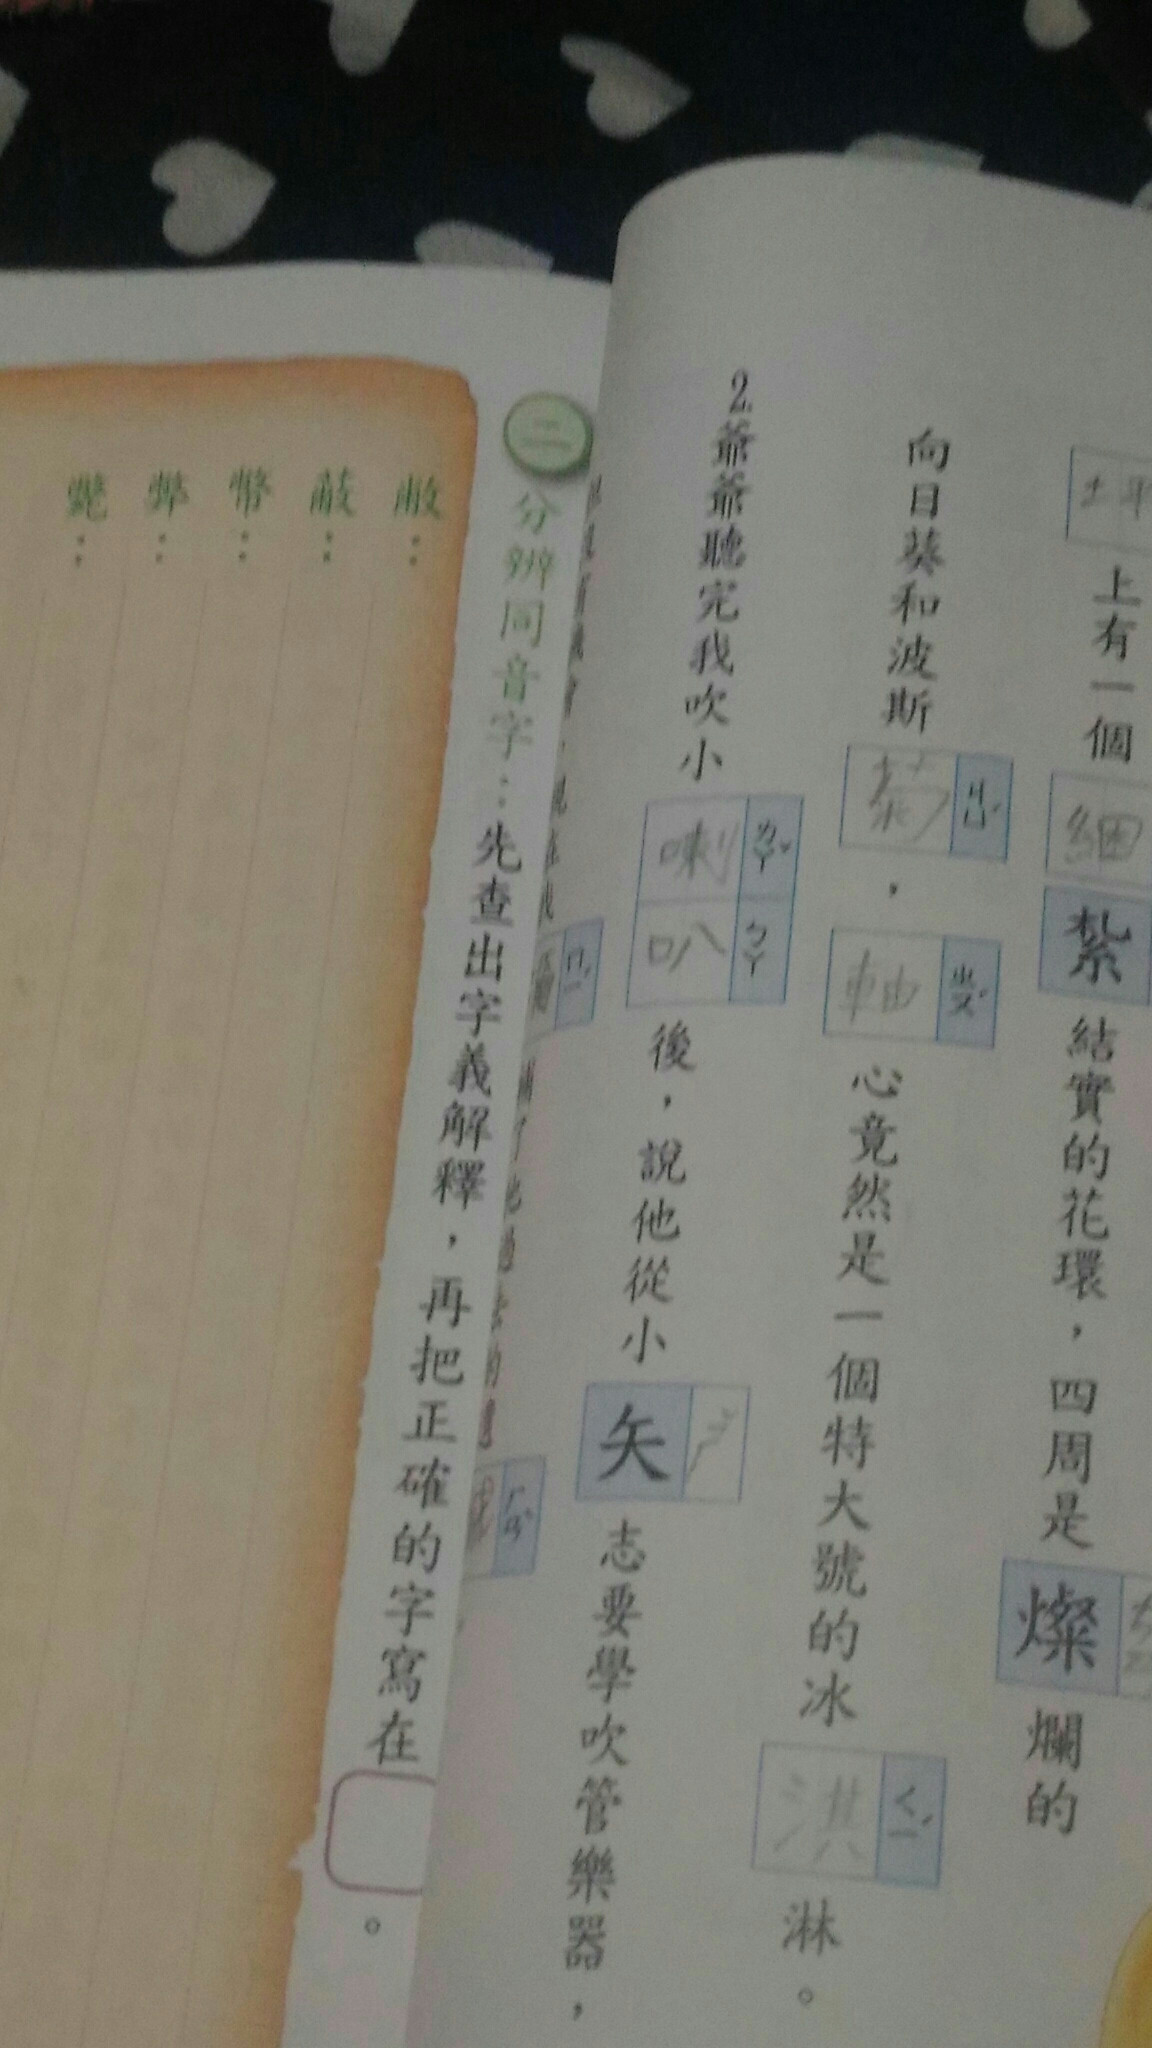 上有一個細紮結實的花環，四周是燦爛的
向日葵和波斯菊ㄐㄩˊ，軸ㄓㄡˊ心竟然是一個特大號的冰淇ㄑㄧˊ淋。
2.爺爺聽完我吹小喇ㄌㄚˇ叭ㄅㄚ後，說他從小矢ㄕˇ志要學吹管樂器，
二 分辨同音字：先查出字義解釋，再把正確的字寫在。
敝：
蔽：
幣：
弊：
斃：